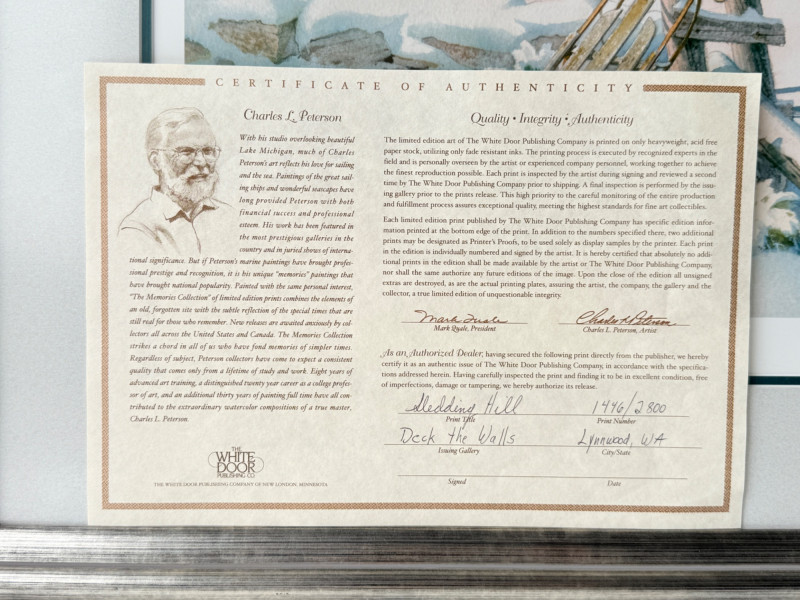 CERTIFICATE OF AUTHENTICITY
Charles L. Peterson
With his studio overlooking beautiful
Lake Michigan, much of Charles
Peterson's art reflects his love for sailing
and the sea. Paintings of the great sail-
ing ships and wonderful seascapes have
long provided Peterson with both
financial success and professional
esteem. His work has been featured in
the most prestigious galleries in the
country and in juried shows of interna-
tional significance. But if Peterson's marine paintings have brought profes-
sional prestige and recognition, it is his unique "memories" paintings that
have brought national popularity. Painted with the same personal interest,
"The Memories Collection" of limited edition prints combines the elements of
an old, forgotten site with the subtle reflection of the special times that are
still real for those who remember. New releases are awaited anxiously by col-
lectors all across the United States and Canada. The Memories Collection
strikes a chord in all of us who have fond memories of simpler times.
Regardless of subject, Peterson collectors have come to expect a consistent
quality that comes only from a lifetime of study and work. Eight years of
advanced art training, a distinguished twenty year career as a college profes-
sor of art, and an additional thirty years of painting full time have all con-
tributed to the extraordinary watercolor compositions of a true master,
Charles L. Peterson.
THE
WHITE
DOOR
PUBLISHING CO
THE WHITE DOOR PUBLISHING COMPANY OF NEW LONDON, MINNESOTA
Quality • Integrity • Authenticity
The limited edition art of The White Door Publishing Company is printed on only heavyweight, acid free
paper stock, utilizing only fade resistant inks. The printing process is executed by recognized experts in the
field and is personally overseen by the artist or experienced company personnel, working together to achieve
the finest reproduction possible. Each print is inspected by the artist during signing and reviewed a second
time by The White Door Publishing Company prior to shipping. A final inspection is performed by the issu-
ing gallery prior to the prints release. This high priority to the careful monitoring of the entire production
and fulfillment process assures exceptional quality, meeting the highest standards for fine art collectibles.
Each limited edition print published by The White Door Publishing Company has specific edition infor-
mation printed at the bottom edge of the print. In addition to the numbers specified there, two additional
prints may be designated as Printer's Proofs, to be used solely as display samples by the printer. Each print
in the edition is individually numbered and signed by the artist. It is hereby certified that absolutely no addi-
tional prints in the edition shall be made available by the artist or The White Door Publishing Company,
nor shall the same authorize any future editions of the image. Upon the close of the edition all unsigned
extras are destroyed, as are the actual printing plates, assuring the artist, the company, the gallery and the
collector, a true limited edition of unquestionable integrity.
Mark Quale
Charles L. Peterson
Mark Quale, President
Charles L. Peterson, Artist
As an Authorized Dealer, having secured the following print directly from the publisher, we hereby
certify it as an authentic issue of The White Door Publishing Company, in accordance with the specifica-
tions addressed herein. Having carefully inspected the print and finding it to be in excellent condition, free
of imperfections, damage or tampering, we hereby authorize its release.
Sledding Hill
1446/2800
Print Title
Print Number
Deck the Walls
Lynnwood, WA
Issuing Gallery
City/State
Signed
Date